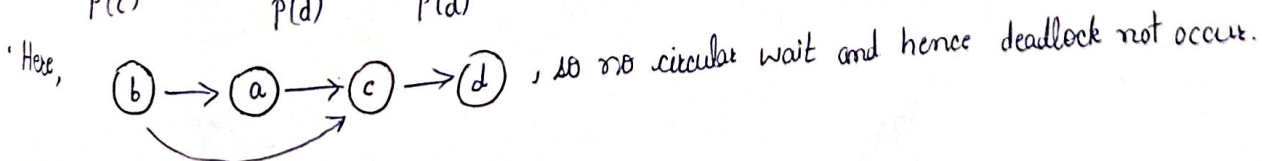 P(c) P(d) P(d)
Here, b → a → c → d , so no circular wait and hence deadlock not occur.